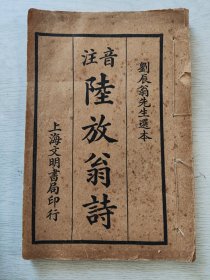 劉辰翁先生選本
音注
陸放翁詩
上海文明書局印行